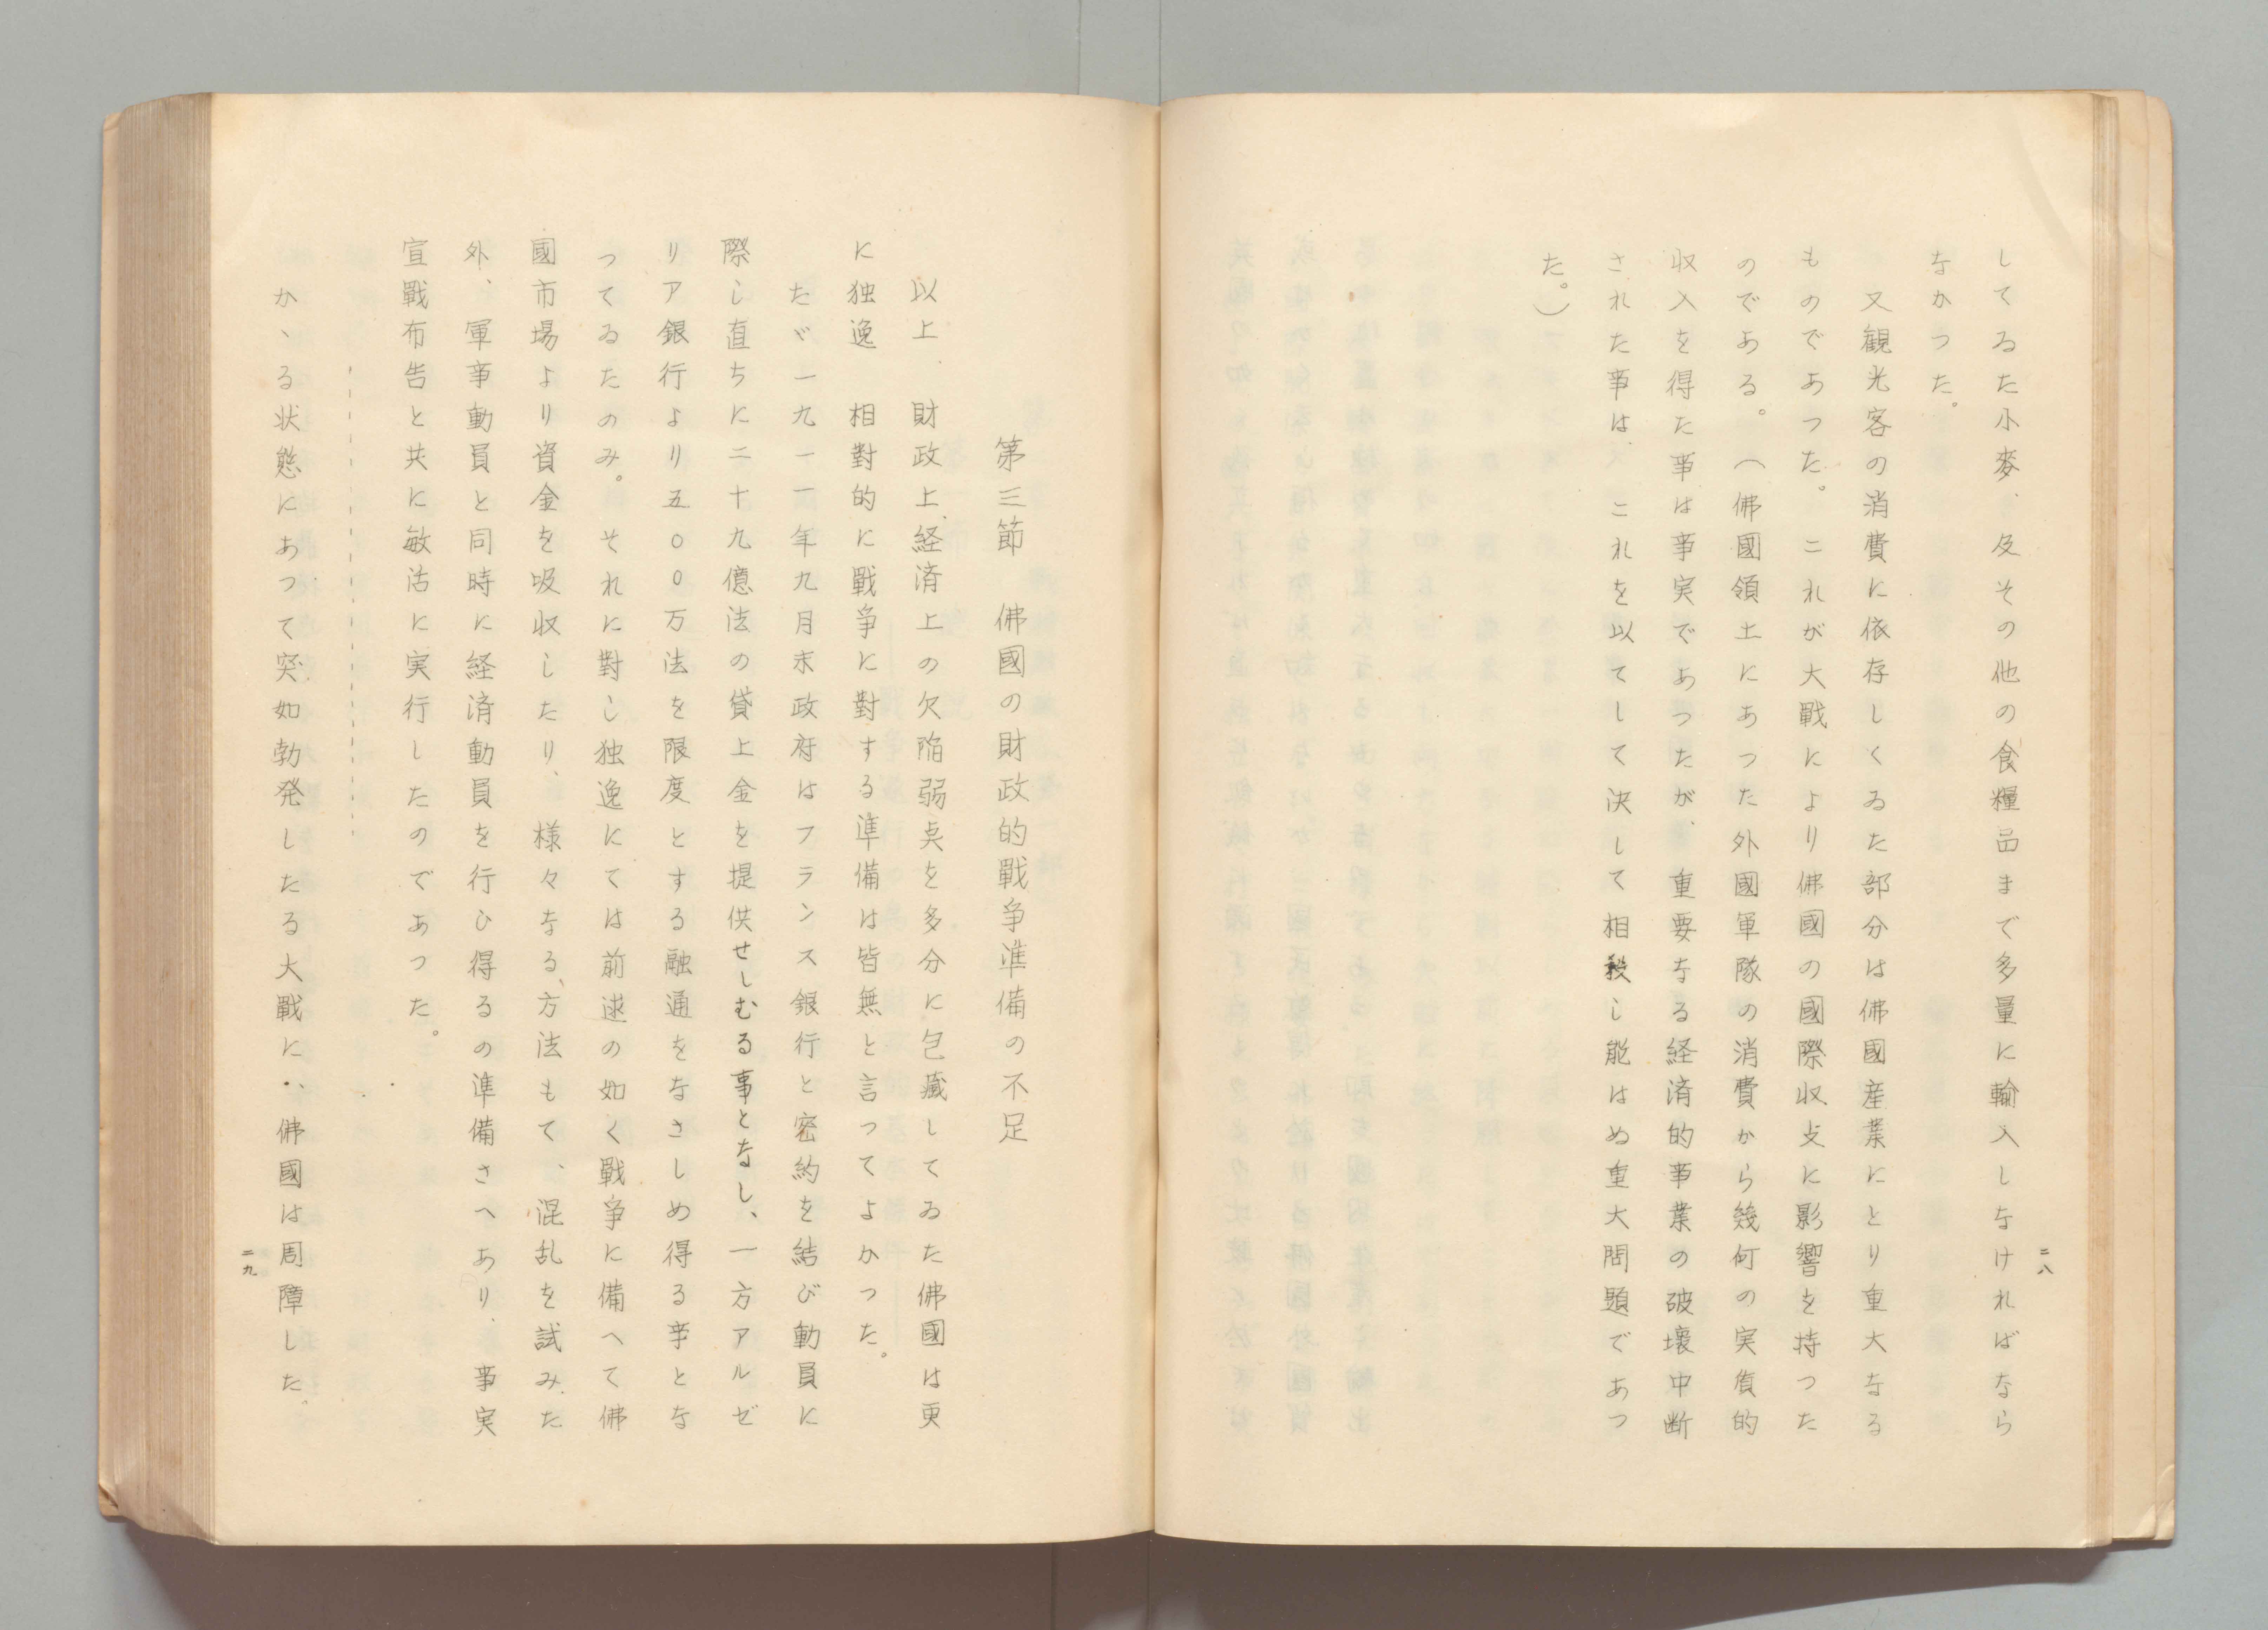 してゐた小麥、及その他の食糧品まで多量に輸入しなければなら
なかつた。
又観光客の消費に依存しくゐた部分は佛國産業にとり重大なる
ものであつた。これが大戰により佛國の國際収支に影響を持つた
のである。（佛國領土にあつた外國軍隊の消費から幾何の実質的
収入を得た事は事実であつたが、重要なる経済的事業の破壊中断
された事は、これを以てして決して相殺し能はぬ重大問題であつ
た。）
二八
第三節　佛國の財政的戰争準備の不足
以上、財政上、経済上の欠陥弱点を多分に包藏してゐた佛國は更
に独逸　相對的に戰争に對する準備は皆無と言つてよかつた。
たゞ一九一一年九月末政府はフランス銀行と密約を結び動員に
際し直ちに二十九億法の貸上金を提供せしむる事となし、一方アルゼ
リア銀行より五〇〇万法を限度とする融通をなさしめ得る事とな
つてゐたのみ。それに對し独逸にては前述の如く戰争に備へて佛
國市場より資金を吸収したり、様々なる、方法もて、混乱を試みた
外、軍事動員と同時に経済動員を行ひ得るの準備さへあり、事実
宣戰布告と共に敏活に実行したのであつた。
かゝる状態にあつて突如勃発したる大戰に、佛國は周障した。
二九